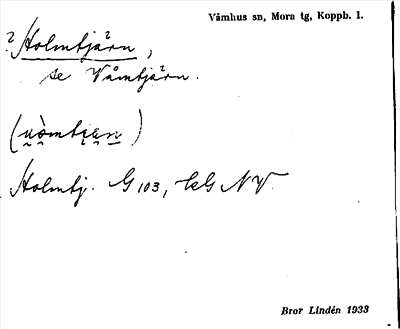 Våmhus sn, Mora tg, Koppb. l.
? Holmtjärn,
se Våmtjärn.
Holmtj. G 103, tkG NV.
Bror Lindén 1933